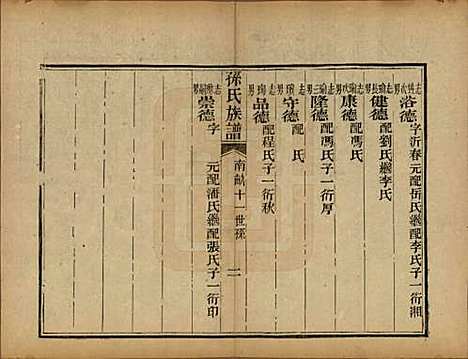 志儁次男 洛德 字沂春元配岳氏繼配李氏子一衍湘
志長男 健德 配劉氏繼李氏
志瑜次男 康德 配馮氏
志瑜三男 隆德 配馮氏子一衍厚
守德 配 氏
志珣男 品德 配程氏子一衍秋
孫氏族譜 南獻十一世孫 二
志嗣男 崇德 字 元配潘氏繼配張氏子一衍印